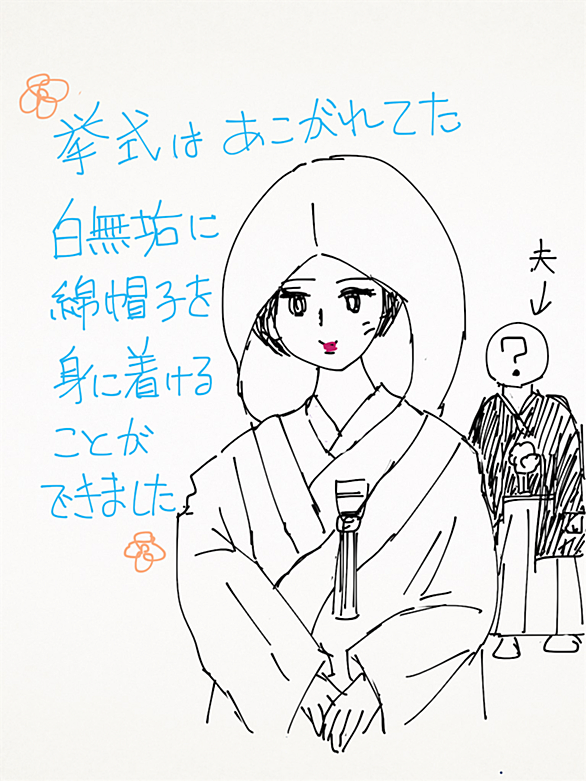 挙式はあこがれてた
白無垢に
綿帽子を
身に着ける
ことが
できました
夫
↓
?